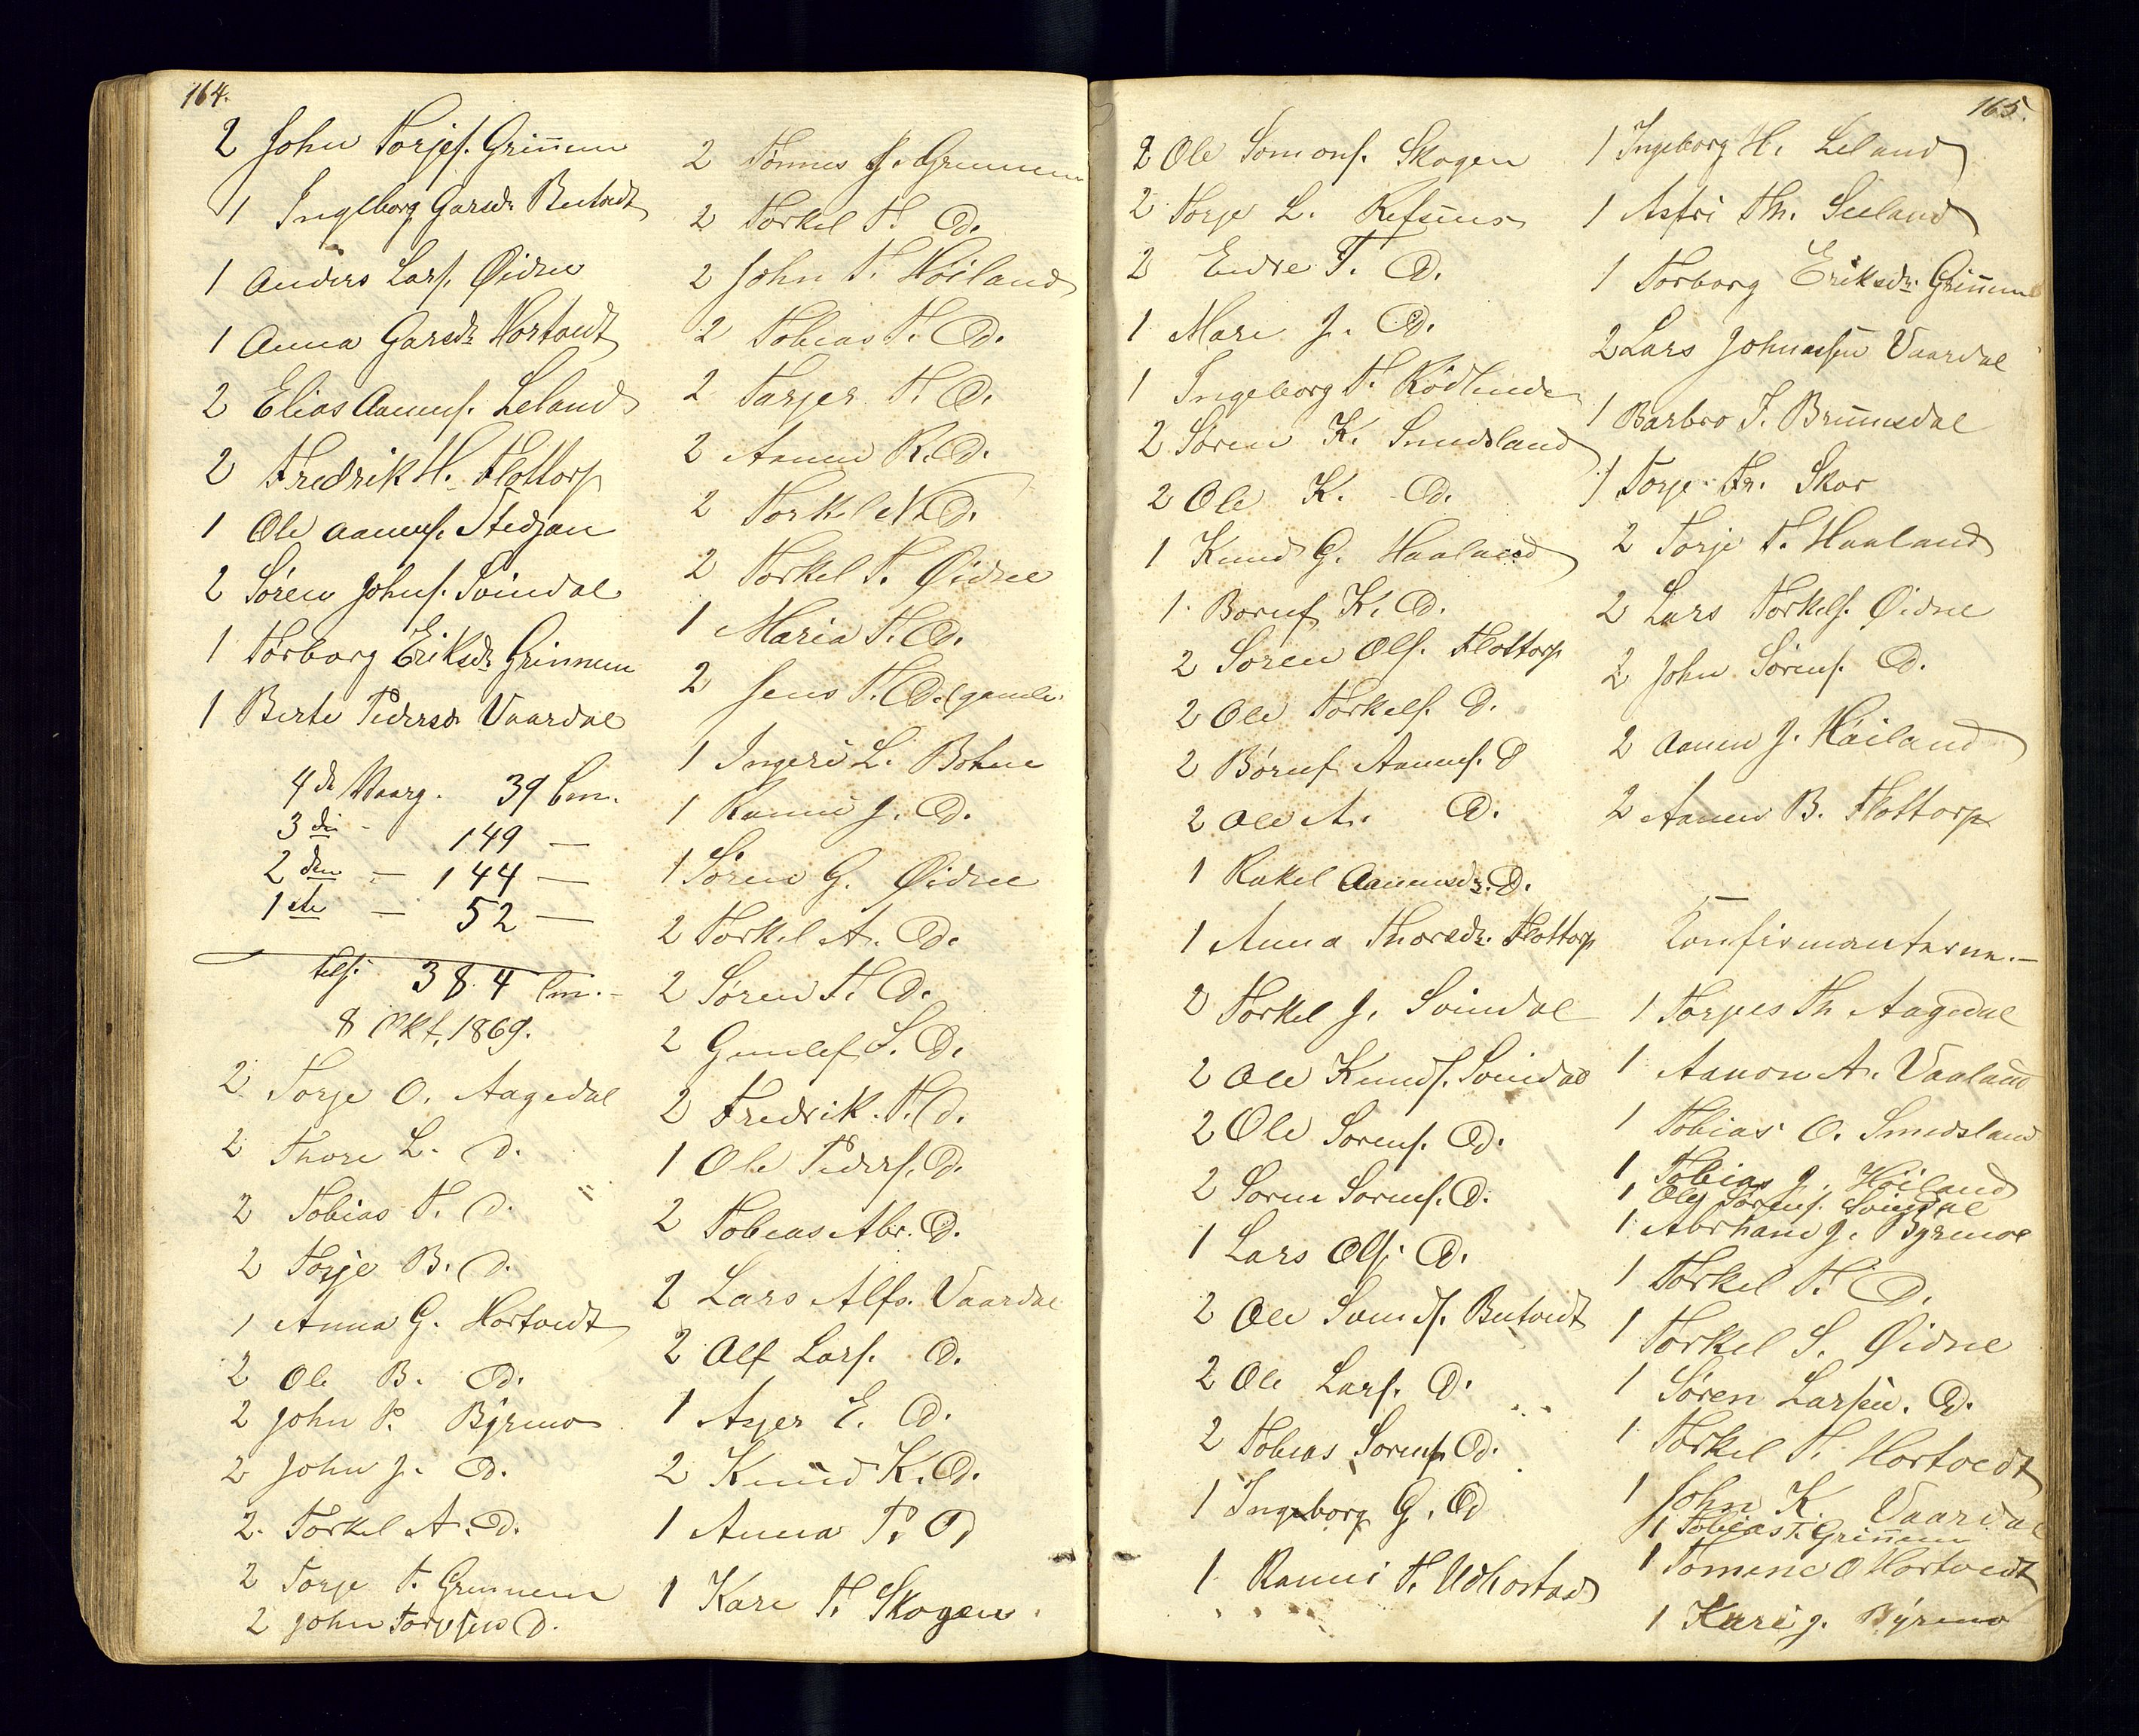 164.
2 John Torjes. Grin̄em
1 Ingeborg Garsdr Butvedt
1 Anders Lars. Øidne
1 Anna Garsdr Hortvedt
2 Elias Aanens. Leland
2 Fredrik H. Flottorp
1 Ole Aanens. Stedjan
2 Søren Johns. Svindal
1 Torborg Eriksdr Grinnem
1 Berte Pedersdr Vaardal
4de Aarg. 39
3die - 149 —
2den - 144 —
1ste — 52 —
tels. 384
8 Okt. 1869.
2 Torje O. Aagedal
2 Thore L. D.
2 Tobias T. D.
2 Torje B. D.
1 Anna G. Hortvedt
2 Ole B. D.
2 John P. Byrmo
2 John J. D.
2. Torkel A. D.
2 Torje T. Grinnem
2 John Torjesen D.
2 Tønnes J. Grinnem
2 Torkel T. D.
2 John T. Høiland
2 Tobias T. D.
2 Tarjer T. D.
2 Aanen R. D.
2 Torkel N. D.
2 Torkel T. Øidne
1 Maria T. D.
2 Jens T. D. (gamle
1 Ingeri L. Bohne
1 Ranni J. D.
1 Søren G. Øidne
2 Torkel A. D.
2 Søren T. D.
2 Gunlef S. D.
2 Fredrik T. D.
1 Ole Peders. D.
2 Tobias Abr. D.
2 Lars Alfs. Vaardal
2 Alf Lars. D.
1 Asjer E. D.
2 Knud K. D.
1 Anna P. D
1 Kare T. Skogen.
165.
2 Ole Somons. Skogen
2 Torje L. Refsnes
2 Endre T. D.
1 Mari J. D.
1 Ingeborg T. Rødlende
2 Søren K. Smedsland
2 Ole K. D.
1 Knud G. Haaland
1. Børuf K. D.
2 Soren Ols. Flottorp
2 Ole Torkels. D.
2 Børuf Aanens. D
2 Ole A. D.
1 Rakel Aanensdr. D.
1 Anna Thorsdr. Flottorp
2 Torkel J. Svindal
2 Ole Knuds. Svindal
2 Ole Sorens. D.
2 Soren Sorens. D.
1 Lars Ols. D.
2 Ole Sunds. Butvedt
2 Ole Lars. D.
2 Tobias Sorens. D.
1 Ingeborg G. D
1. Ranni T. Udhortad
1 Ingeborg H. Leland
1 Asfri Th. Seeland
1 Torborg Eriksdr. Grin̄em
2 Lars Johnassen Vaardal
1 Barbro J. Brunnesdal
1 Torje Fr. Skor
2 Torje T. Haaland
2 Lars Torkels. Øidne
2 John Sørens. D.
2 Aanen J. Høiland
2 Aanen B. Flottorp
Konfirmanterne.—
1 Torjus Th Aagedal
1 Aanon A. Vaaland
1 Tobias O. Smedsland
1 Tobias J. Høiland
1 Ole Sørens. Svindal
1 Abrham J. Byrmoe
1 Torkel T. D.
1 Torkel S. Øidne
1 Søren Larsen. D.
1 Torkel T. Hortvedt
1 John K. Vaardal
1 Tobias T. Grin̄em
1 Tomine O Hortvedt
1 Kari J. Byrmo